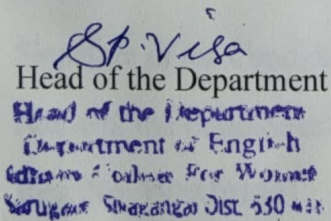 SP. Visa
Head of the Department
Head of the Department
Department of English
For Women
Sivaganga Dist. 630